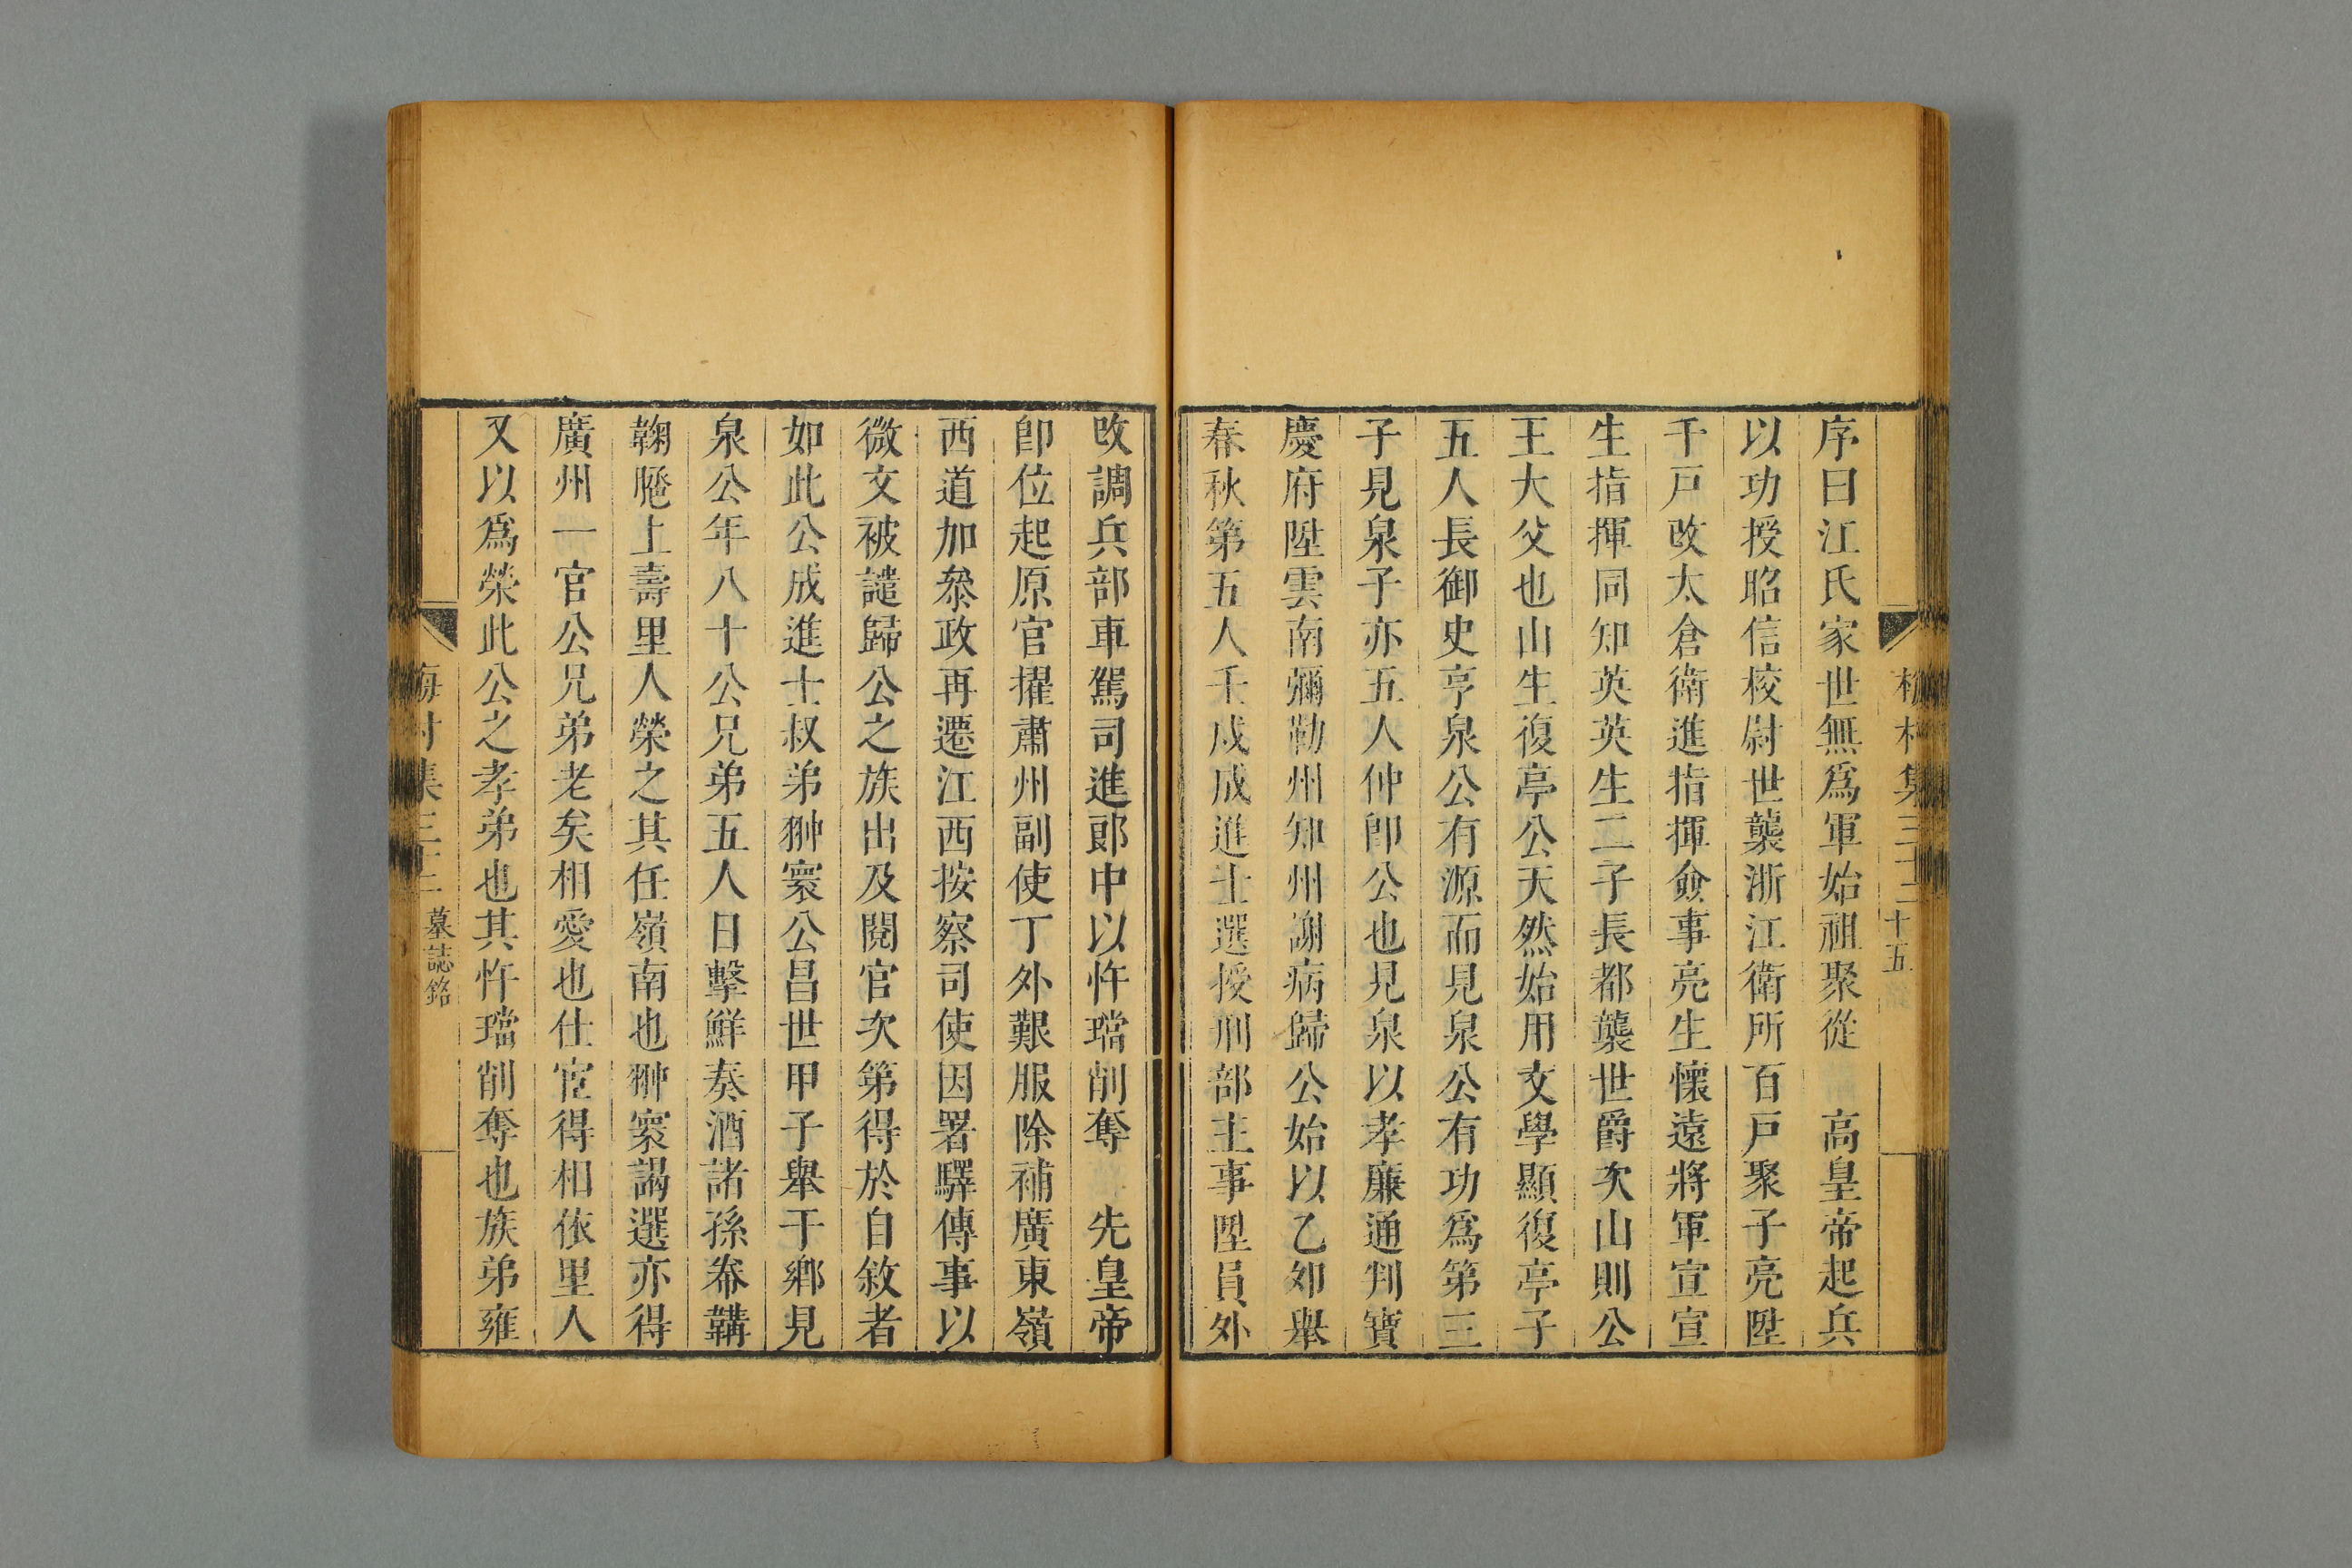 序曰江氏家世無爲軍始祖聚從　高皇帝起兵
以功授昭信校尉世襲浙江衛所百戸聚子亮陞
千戸改太倉衛進指揮僉事亮生懷遠將軍宣宣
生指揮同知英英生二子長都襲世爵次山則公
王大父也山生復亭公天然始用文學顯復亭子
五人長御史亨泉公有源而見泉公有功爲第三
子見泉子亦五人仲卽公也見泉以孝廉通判寶
慶府陞雲南彌勒州知州謝病歸公始以乙卯舉
春秋第五人壬戌成進士選授刑部主事陞員外
改調兵部車駕司進郎中以忤璫削奪　先皇帝
卽位起原官擢肅州副使丁外艱服除補廣東嶺
西道加叅政再遷江西按察司使因署驛傳事以
微文被譴歸公之族出及閱官次第得於自敘者
如此公成進士叔弟翀寰公昌世甲子舉于鄉見
泉公年八十公兄弟五人日擊鮮奏酒諸孫帣韝
鞠䠆上壽里人榮之其任嶺南也翀寰謁選亦得
廣州一官公兄弟老矣相愛也仕宦得相依里人
又以爲榮此公之孝弟也其忤璫削奪也族弟雍
梅村集三十二
十五
墓誌銘